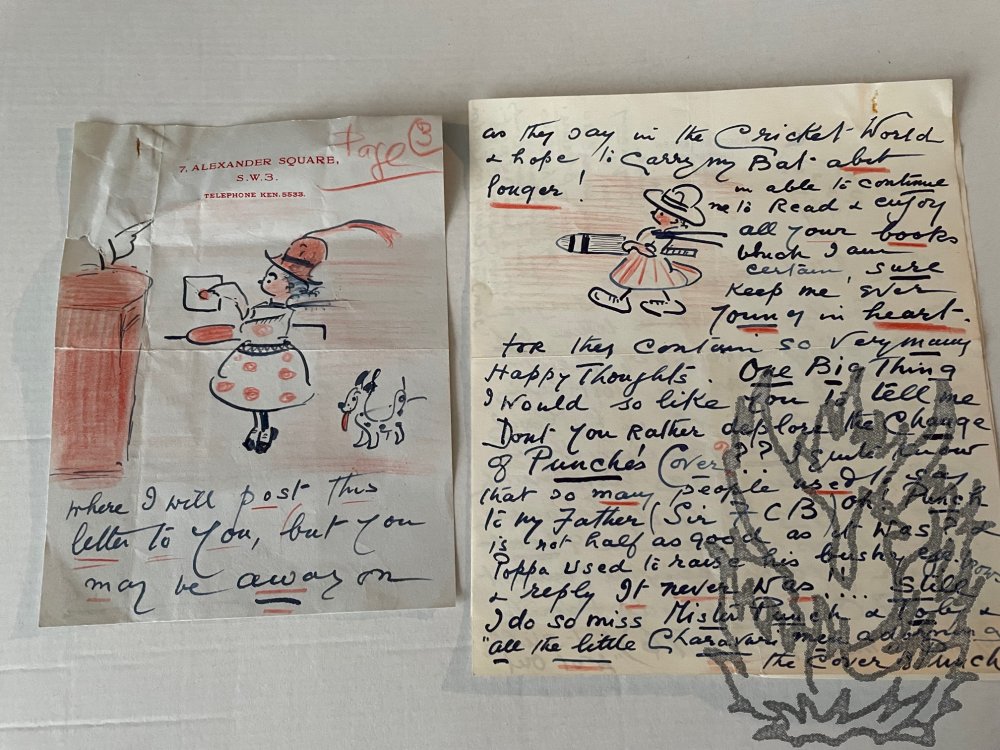 Page 3
7, ALEXANDER SQUARE,
S.W.3.
TELEPHONE KEN. 5533.
where I will post this
letter to You, but you
may be away on
as they say in the Cricket World
& hope to carry my Bat a bit
longer!
able to continue
to Read & enjoy
all your books
which I am
certain, sure
keep me ever
Young in heart.
For they contain so very many
Happy Thoughts. One Big Thing
I would so like You to tell me
Dont You Rather deplore the Change
of Punche's Cover?? I quite know
that so many people used to say
to my Father (Sir F C B) oh! Punch
is not half as good as it was! &
Poppa used to raise his bushy eye.brow
& reply It never Was!! .... Still
I do so miss Mister Punch & Toby &
"all the little Charavari men adorning
the Cover of Punch